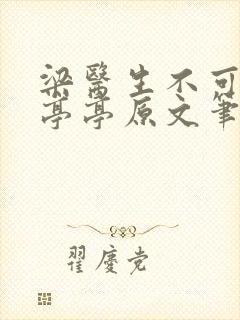 梁醫生不可
亭亭原文筆
翟慶党